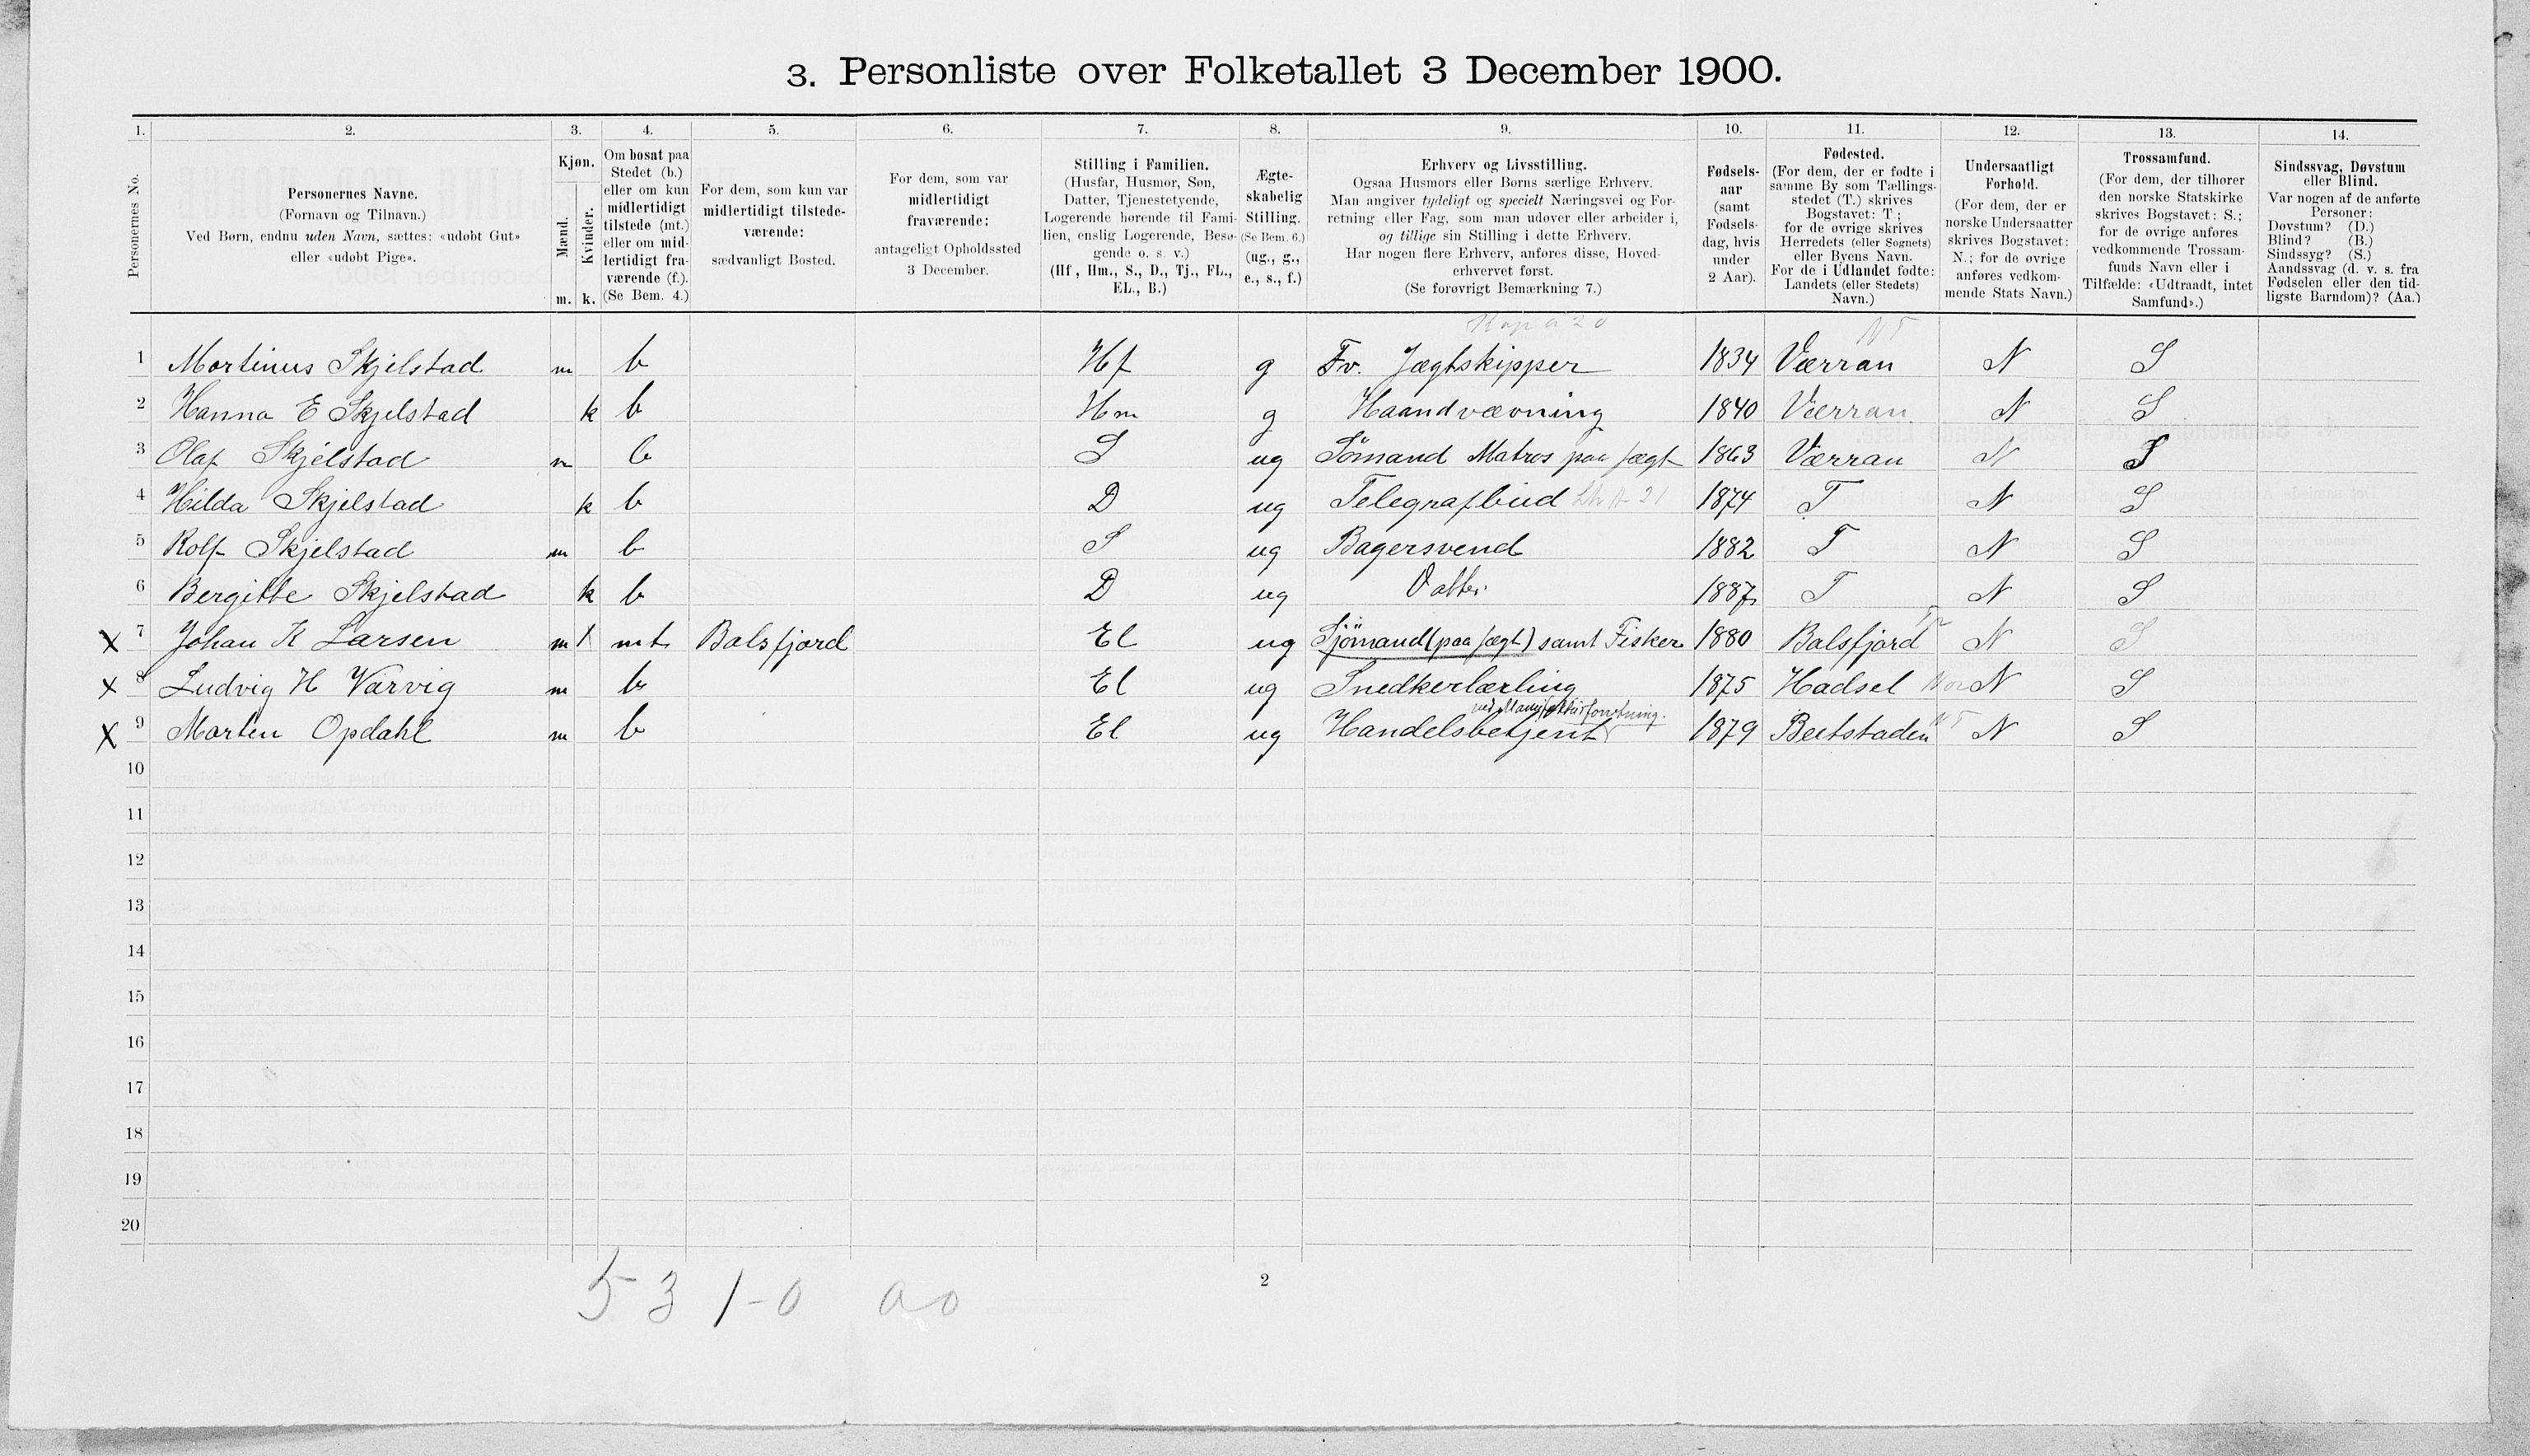 3. Personliste over Folketallet 3 December 1900.
1. 2. 3. 4. 5. 6. 7. 8. 9. 10. 11. 12. 13. 14.
Personernes No.
Personernes Navne.
(Fornavn og Tilnavn.)
Ved Børn, endnu uden Navn, sættes: «udøbt Gut»
eller «udøbt Pige».
Kjøn.
Mænd.
Kvinder.
m. k.
Om bosat paa
Stedet (b.)
eller om kun
midlertidigt
tilstede (mt.)
eller om mid-
lertidigt fra-
værende (f.).
(Se Bem. 4.)
For dem, som kun var
midlertidigt tilstede-
værende:
sædvanligt Bosted.
For dem, som var
midlertidigt
fraværende:
antageligt Opholdssted
3 December.
Stilling i Familien.
(Husfar, Husmor, Søn,
Datter, Tjenestetyende,
Logerende hørende til Fami-
lien, enslig Logerende, Besø-
gende o. s. v.)
(Hf., Hm., S., D., Tj., FL.,
EL., B.)
Ægte-
skabelig
Stilling.
(Se Bem. 6.)
(ug., g.,
e., s., f.)
Erhverv og Livsstilling.
Ogsaa Husmors eller Børns særlige Erhverv.
Man angiver tydeligt og specielt Næringsvei og For-
retning eller Fag, som man udøver eller arbeider i,
og tillige sin Stilling i dette Erhverv.
Har nogen flere Erhverv, anføres disse, Hoved-
erhvervet først.
(Se forøvrigt Bemærkning 7.)
Fødsels-
aar
(samt
Fødsels-
dag, hvis
under
2 Aar).
Fødested.
(For dem, der er fødte i
samme By som Tællings-
stedet (T.) skrives
Bogstavet: T;
for de øvrige skrives
Herredets (eller Sognets)
eller Byens Navn.
For de i Udlandet fødte:
Landets (eller Stedets)
Navn.)
Undersaatligt
Forhold.
(For dem, der er
norske Undersaatter
skrives Bogstavet:
N.; for de øvrige
anføres vedkom-
mende Stats Navn.)
Trossamfund.
(For dem, der tilhører
den norske Statskirke
skrives Bogstavet: S.;
for de øvrige anføres
vedkommende Trossam-
funds Navn eller i
Tilfælde: «Udtraadt, intet
Samfund».)
Sindssvag, Døvstum
eller Blind.
Var nogen af de anførte
Personer:
Døvstum? (D.)
Blind? (B.)
Sindssyg? (S.)
Aandssvag (d. v. s. fra
Fødselen eller den tid-
ligste Barndom)? (Aa.)
NT
1 Martinus Skjelstad m b Hf g Fv. Jægtskipper 1834 Værran N S
2 Hanna E Skjelstad k b Hm g Haandvævning 1840 Værran N S
3 Olaf Skjelstad m b S ug Sömand Matros paa Jægt 1863 Værran N S
4 Hilda Skjelstad k b D ug Telegrafbud 1874 T N S
5 Rolf Skjelstad m b S ug Bagersvend 1882 T N S
6 Bergitte Skjelstad k b D ug Datter 1887 T N S
X 7 Johan K Larsen m 1 mt Balsfjord El ug Sjömand (paa Jægt) samt Fisker 1880 Balsfjord N S
X 8 Ludvig H Varvig m b El ug Snedkerlærling 1875 Hadsel Nor N S
ved Manufakturforretning.
X 9 Morten Opdahl m b El ug Handelsbetjent 1879 Beitstaden NT N S
10
11
12
13
14
15
16
17
18
19
20
5 3 1-0 00
2